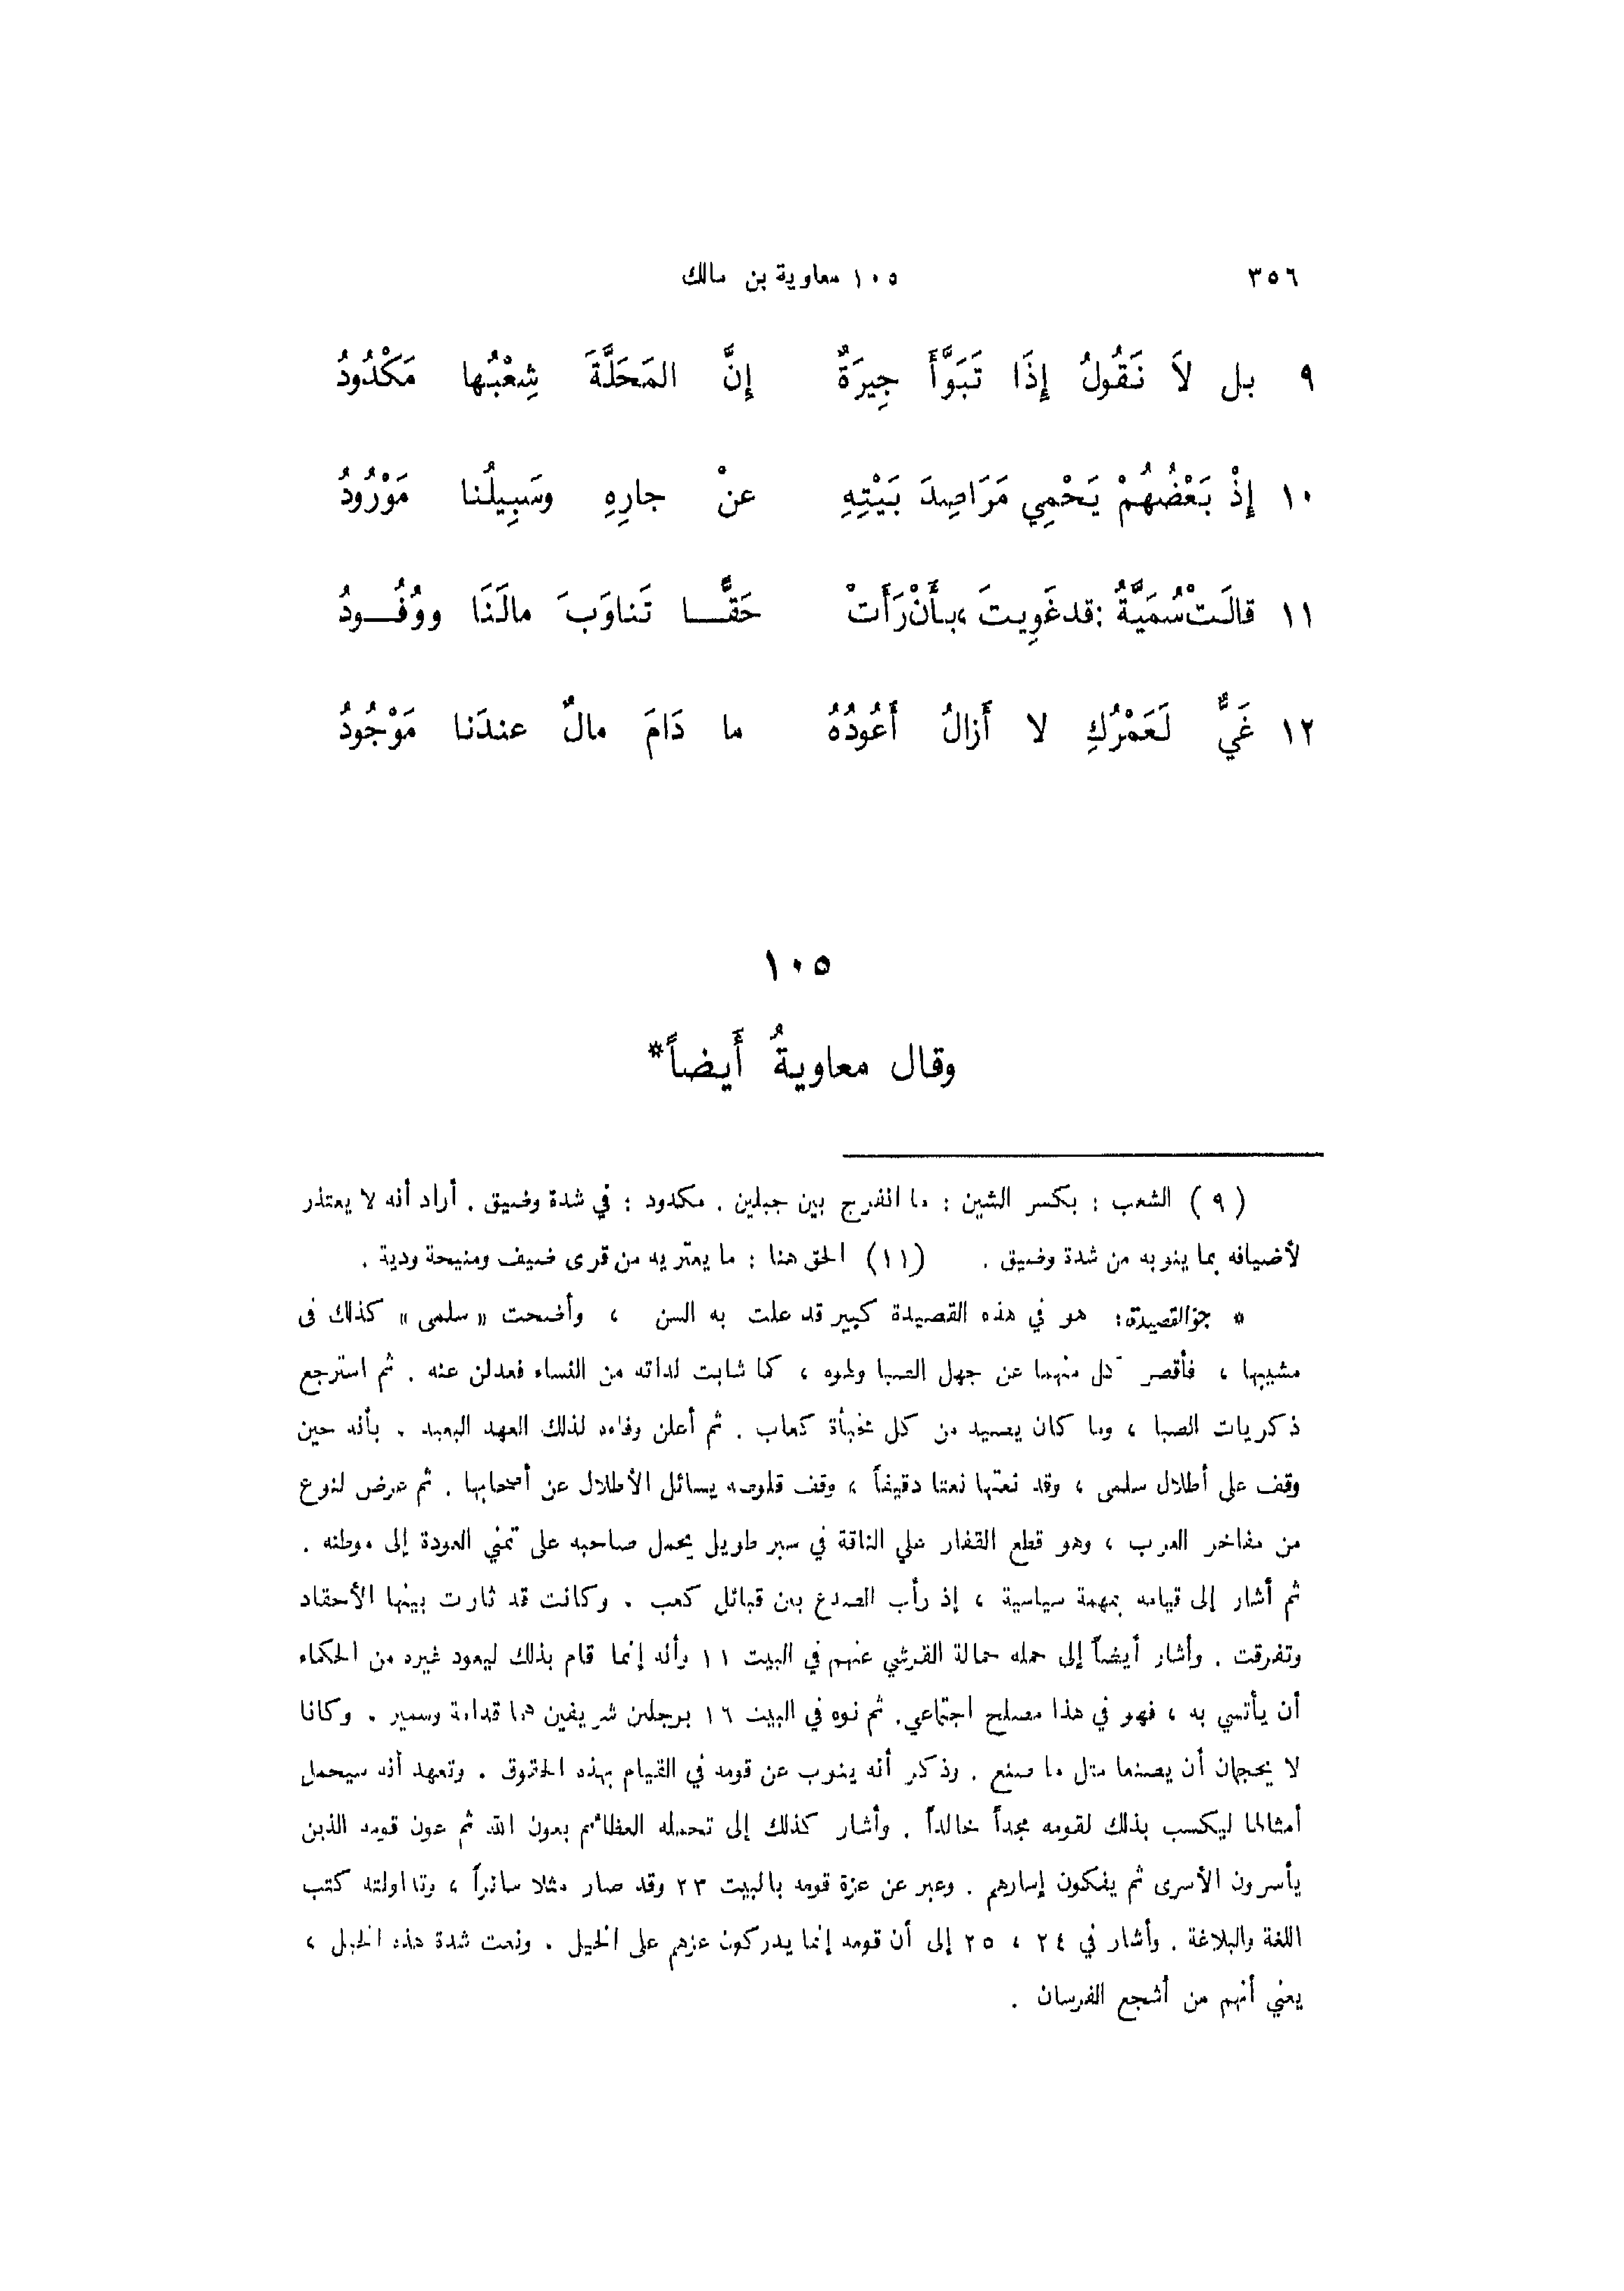 ٣٥٦ ١٠٥ معاوية بن مالك
٩ بل لاَ نَقُولُ إِذَا تَبَوَّأَ جِيرَةٌ إِنَّ المَحَلَّةَ شِعْبُها مَكْدُودُ
١٠ إِذْ بَعْضُهُمْ يَحْمِي مَرَاصِدَ بَيْتِهِ عنْ جارِهِ وسَبِيلُنا مَوْرُودُ
١١ قالَتْ سُمَيَّةُ : قد غَوِيتَ ، بأَنْ رَأَتْ حَقًّا تَناوَبَ مالَنَا ووُفُودُ
١٢ غَيٌّ لَعَمْرُكِ لا أَزالُ أَعُودُهُ ما دَامَ مالٌ عندَنا مَوْجُودُ
١٠٥
وقال معاويةُ أَيضاً*
( ٩ ) الشعب : بكسر الشين : ما انفرج بين جبلين . مكدود : في شدة وضيق . أراد أنه لا يعتذر
لأضيافه بما ينوبه من شدة وضيق . (١١) الحق هنا : ما يعتريه من قرى ضيف ومنيحة ودية .
* جوّ القصيدة: هو في هذه القصيدة كبير قد علت به السن ، وأضحت « سلمى » كذلك فى
مشيبها ، فأقصر كل منهما عن جهل الصبا ولهوه ، كما شابت لداته من النساء فعدلن عنه . ثم استرجع
ذكريات الصبا ، وما كان يصيد من كل مخبأة كعاب . ثم أعلن وفاءه لذلك العهد البعيد . بأنه حين
وقف على أطلال سلمى ، وقد نعتها نعتا دقيقاً ، وقف قلوصه يسائل الأطلال عن أصحابها . ثم عرض لنوع
من مفاخر العرب ، وهو قطع القفار على الناقة في سير طويل يحمل صاحبه على تمني العودة إلى موطنه .
ثم أشار إلى قيامه بمهمة سياسية ، إذ رأب الصدع بين قبائل كعب . وكانت قد ثارت بينها الأحقاد
وتفرقت . وأشار أيضاً إلى حمله حمالة القرشي عنهم في البيت ١١ وأنه إنما قام بذلك ليعود غيره من الحكماء
أن يأتسي به ، فهو في هذا مصلح اجتماعي. ثم نوه في البيت ١٦ برجلين شريفين هما قدامة وسمير . وكانا
لا يحجمان أن يصنعا مثل ما صنع . وذكر أنه ينوب عن قومه في القيام بهذه الحقوق . وتعهد أنه سيحمل
أمثالها ليكسب بذلك لقومه مجداً خالداً . وأشار كذلك إلى تحمله العظائم بعون الله ثم عون قومه الذين
يأسرون الأسرى ثم يفكون إسارهم . وعبر عن عزة قومه بالبيت ٢٣ وقد صار مثلا سائراً ، وتداولته كتب
اللغة والبلاغة . وأشار في ٢٤ ، ٢٥ إلى أن قومه إنما يدركون عزهم على الخيل . ونعت شدة هذه الخيل ،
يعني أنهم من أشجع الفرسان .